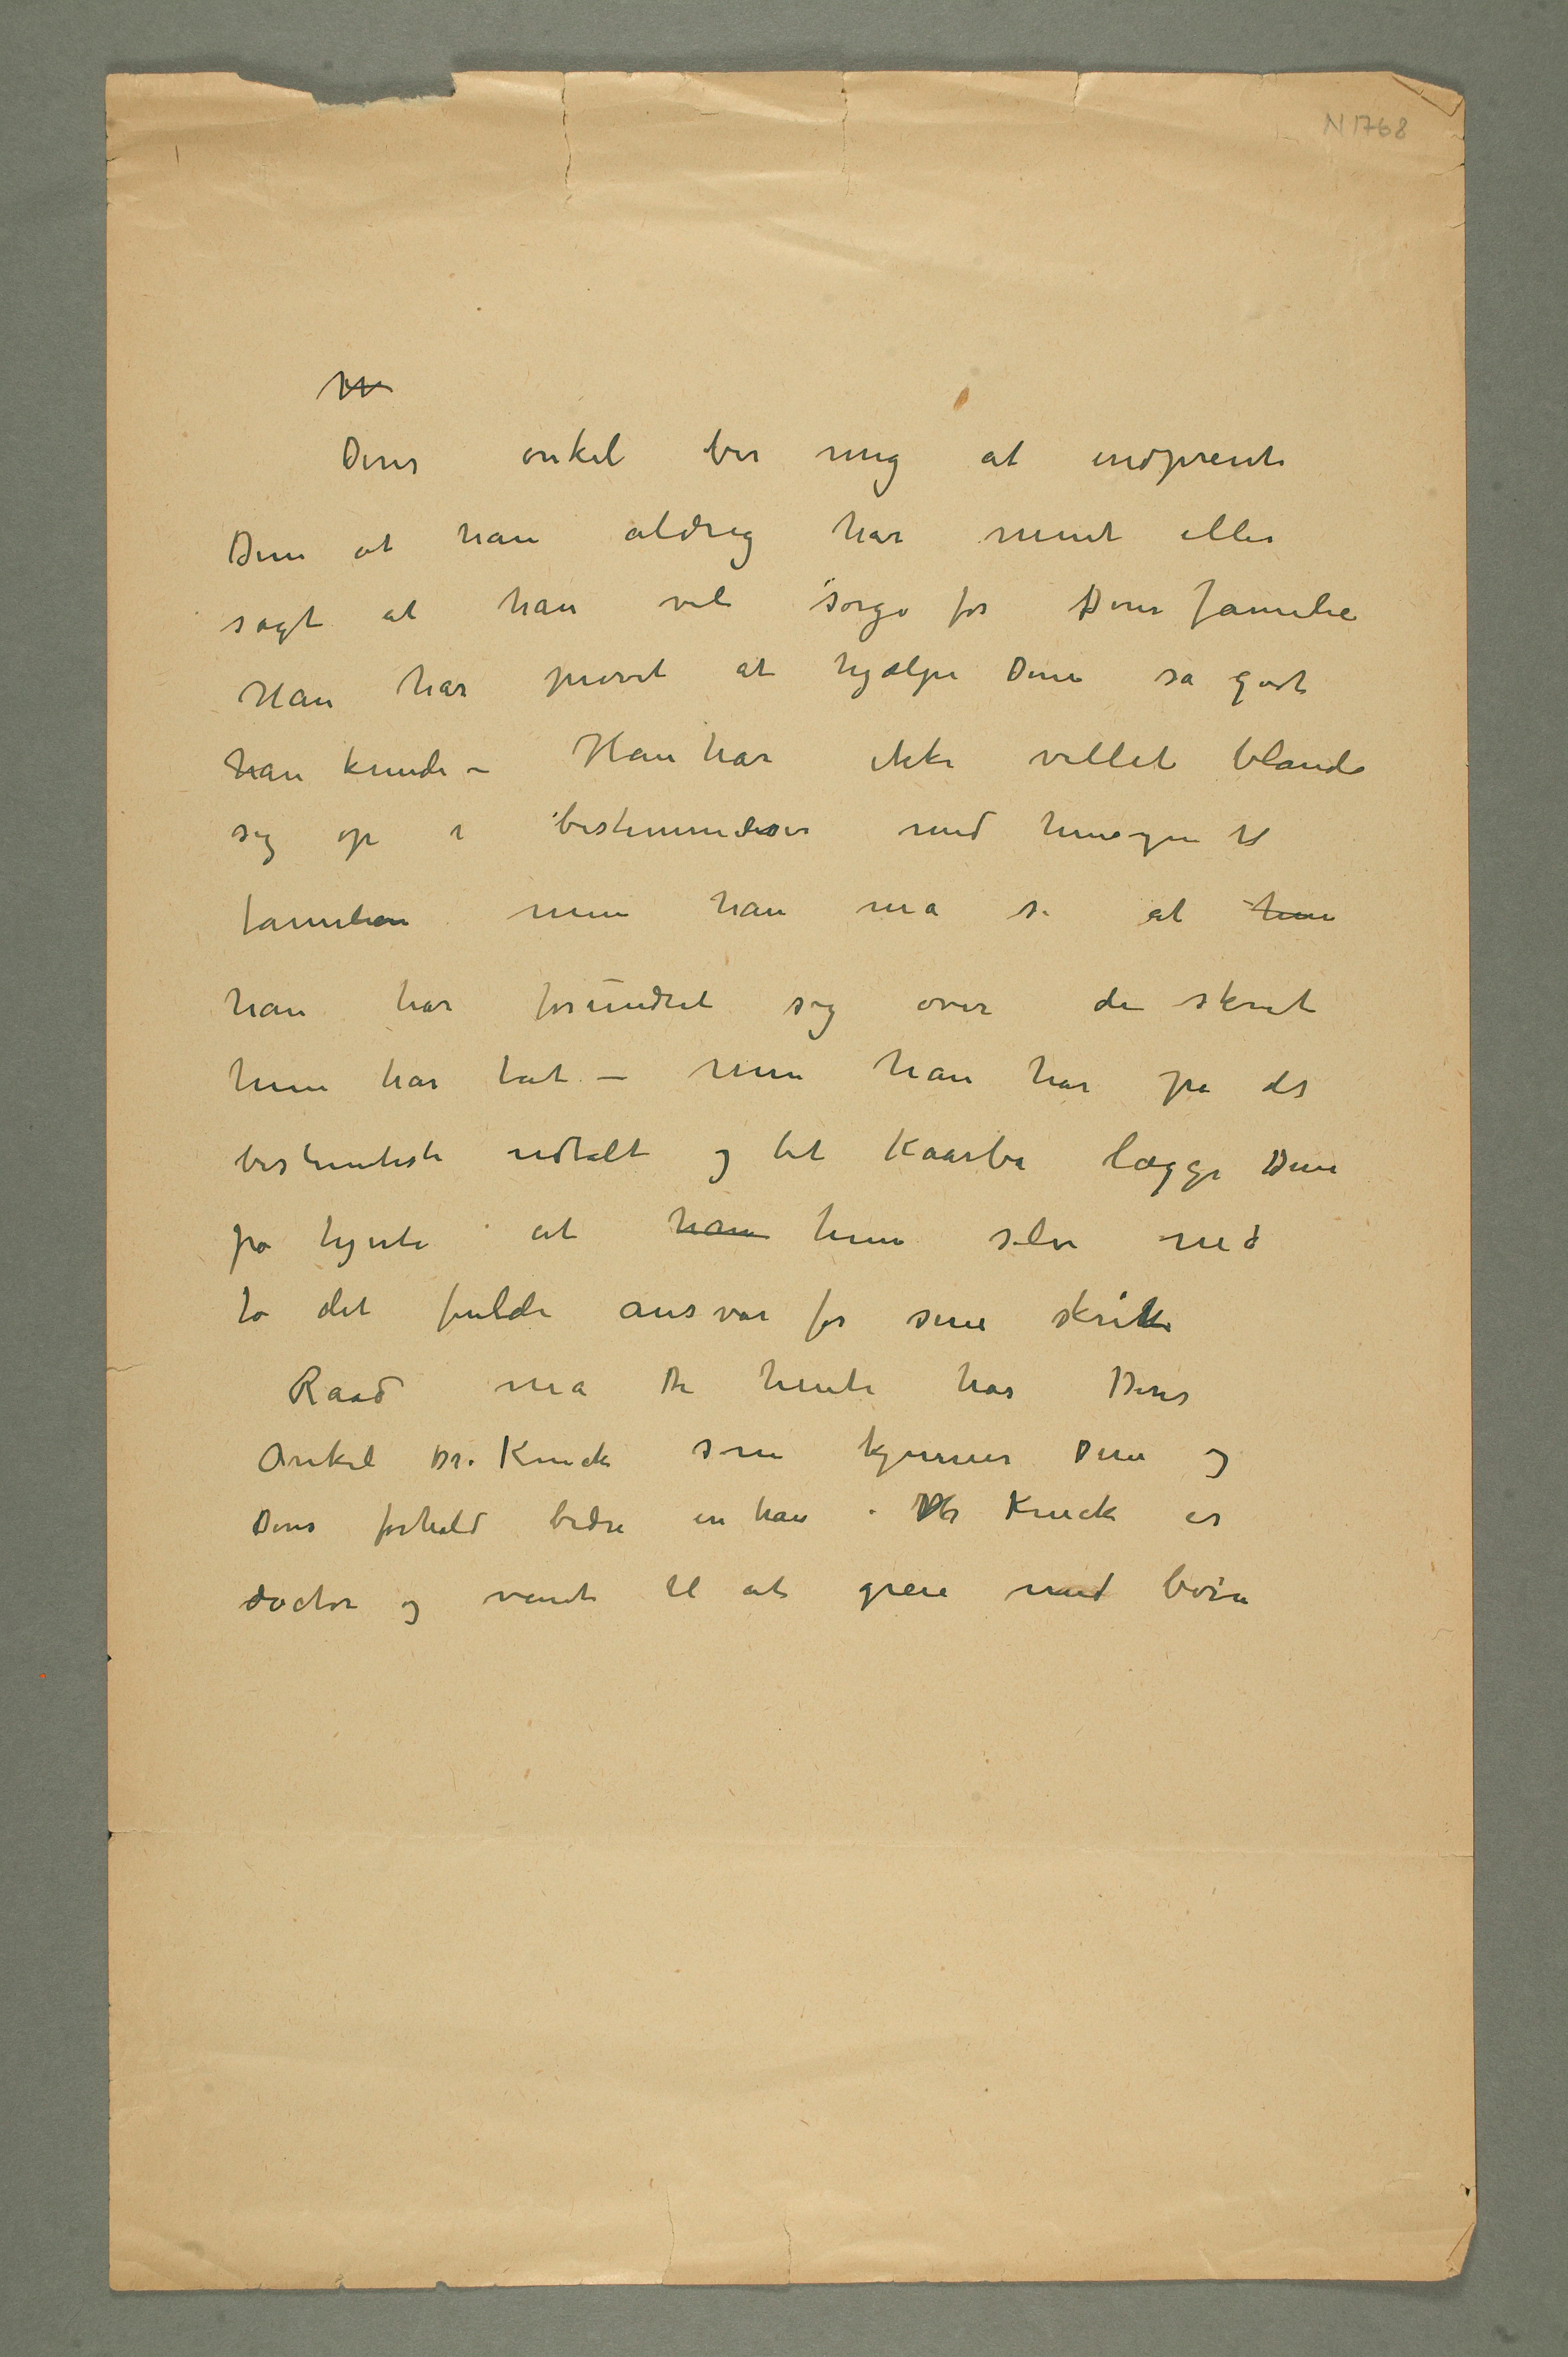 N 1768
Deres onkel ber mig at indprente
Dem at han aldrig har ment eller
sagt at han vil sørge for Deres familie
Han har prøvet at hjælpe Dem så godt
han kunde – Han har ikke villet blande
sig op i bestemmelser med hensyn til
familien men han må si at hun
han har forundret sig over de skrit
hun har tat – men han har på det
bestemteste udtalt og bet Kaarbø lægge Dem
på hjerte at han hun selv må
ta det fulde ansvar for sine skrit
Raad må De hente hos Deres
Onkel Dr. Kinck som kjenner Dem og
Deres forhold bedre en han. Kinck er
doctor og vant til at greie med børn